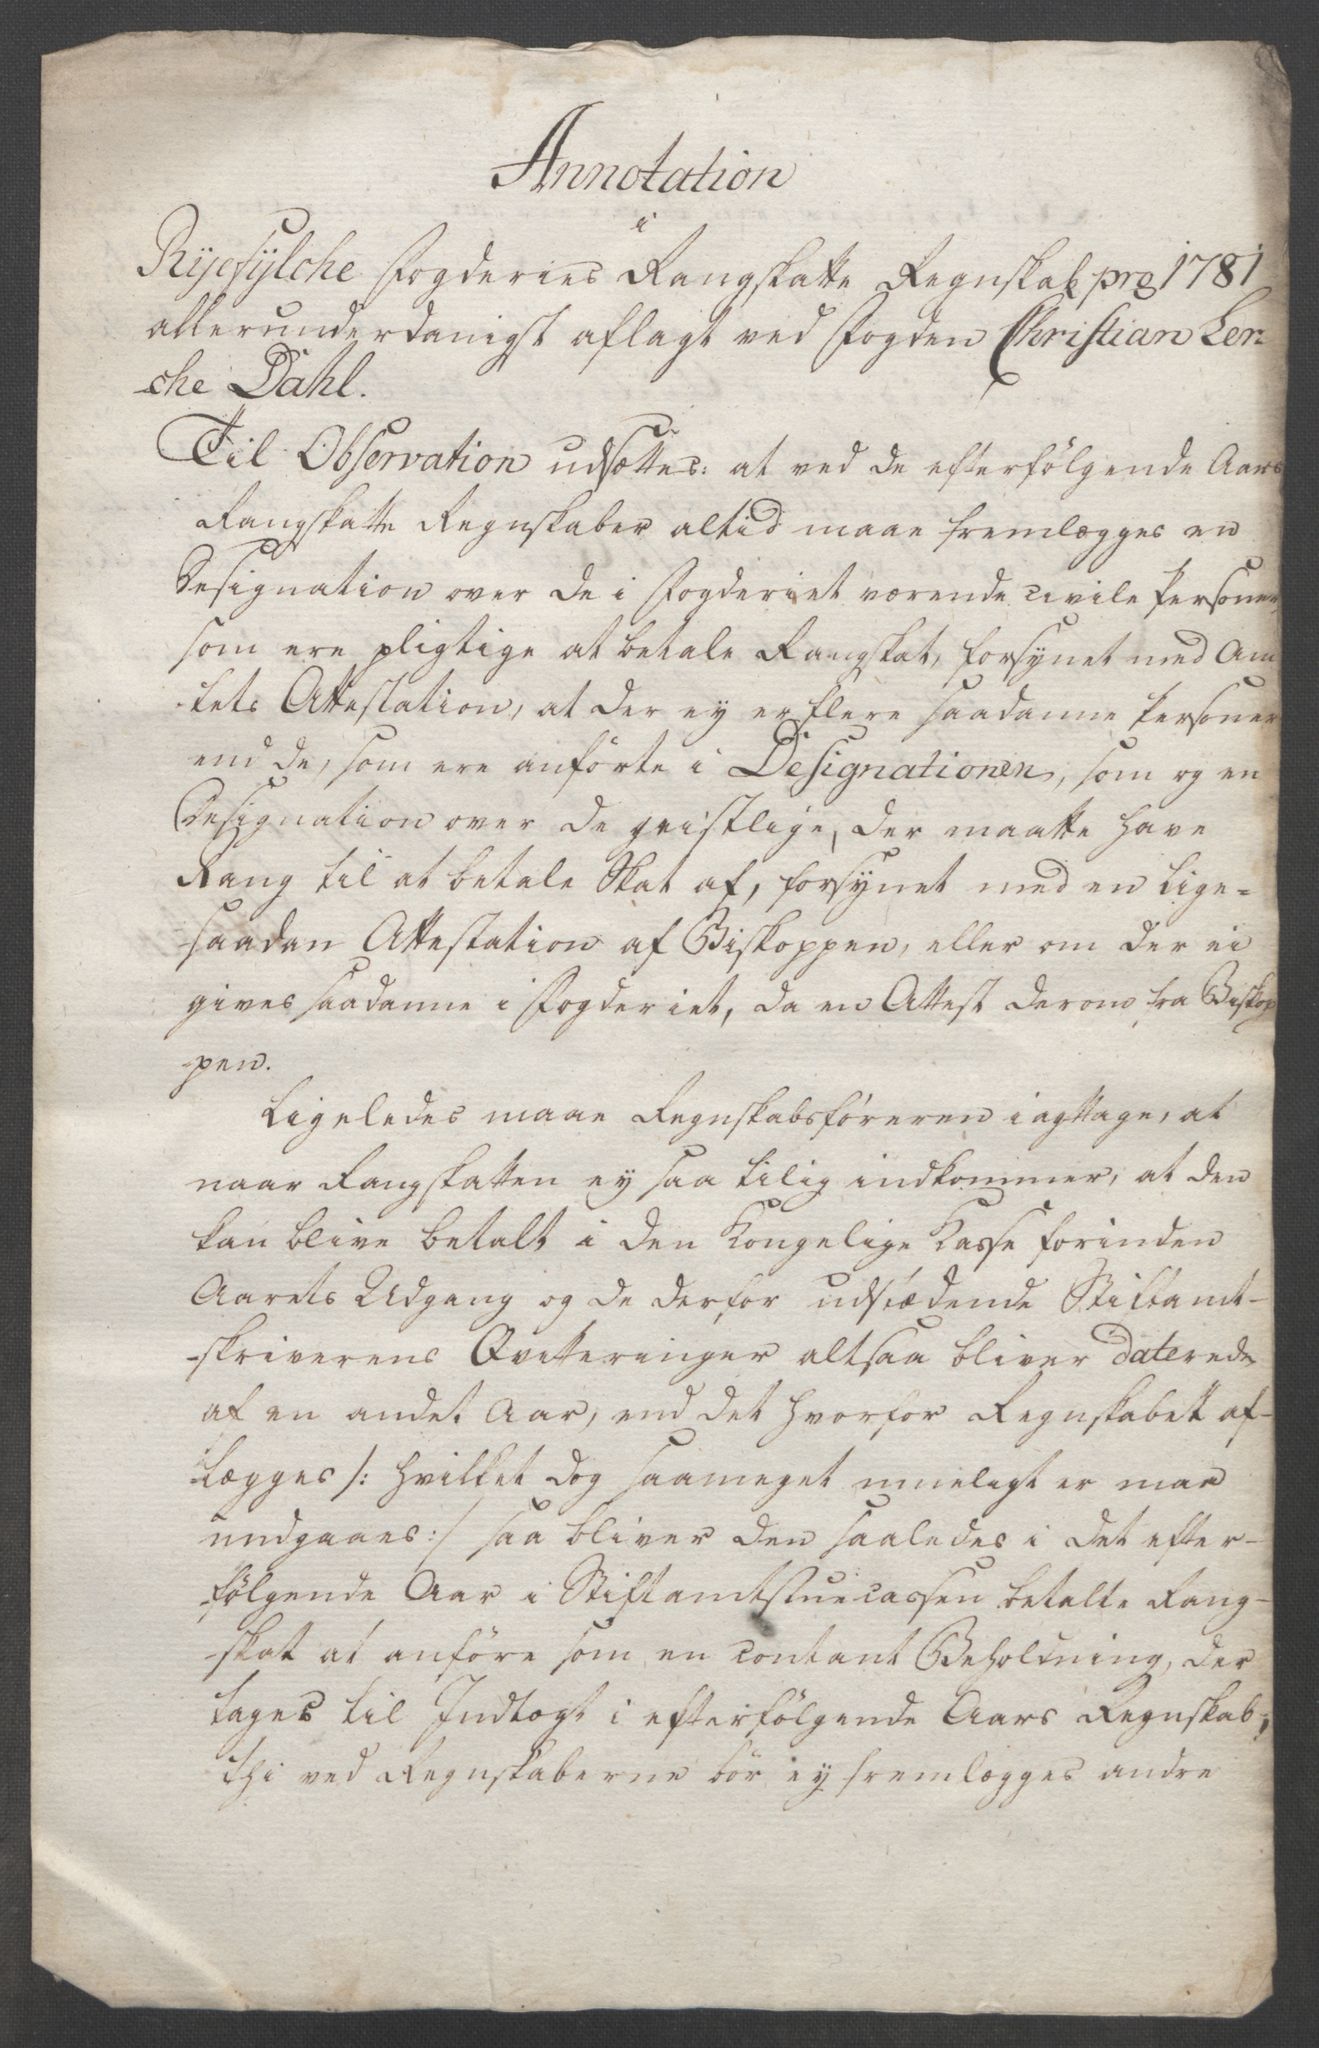 Annotation
i
Ryefylche Fogderies Rangskatte Regnskab pro 1781
allerunderdanigst aflagt ved Fogden Christian Ler-
-che Dahl.
Til Observation udsættes: at ved de efterfölgende Aars
Rangskatte Regnskaber altid maae fremlægges en
Designation over de i Fogderiet værende civile Personer,
som ere pligtige at betale Rangskat, forsynet med Am
-tets Attestation, at der ey er flere saadanne Personer
end de, som ere anförte i Designationen, som og en
Designation over de geistlige, der maatte have
Rang til at betale Skat af, forsynet med en lige-
-saadan Attestation af Biskoppen, eller om der ei
gives saadanne i Fogderiet, da en Attest derom fra Biskop
-pen.
Ligeledes maae Regnskabsföreren iagttage, at
naar Rangskatten ey saa tilig indkommer, at den
kan blive betalt i den Kongelige Kasse forinden
Aarets Udgang og de derfor udstædende Stiftamt-
-skriverens Qvitteringer altsaa bliver daterede
af en andet Aar, end det hvorfor Regnskabett af-
-lægges /: hvilket dog saameget mueligt er maa
undgaaes :/ saa bliver den saaledes i det efter-
-følgende Aar i Stiftamtstuecassen betalte Rang-
-skat at anföre som en contant Beholdning, der
tages til Indtægt i efterfölgende Aars Regnskab,
thi ved Regnskaberne bör ey fremlægges andre